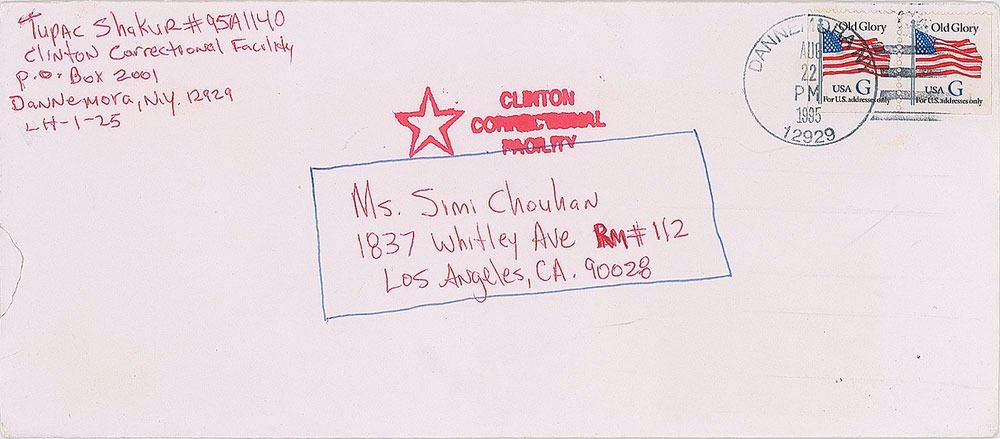 Tupac Shakur #95A1140
Clinton Correctional Facility
P.O. Box 2001
Dannemora, N.Y. 12929
LH-1-25
CLINTON
CORRECTIONAL
FACILITY
DANNEMORA, NY
AUG
22
PM
1995
12929
Old Glory
USA G
For U.S. addresses only
Old Glory
USA G
For U.S. addresses only
Ms. Simi Chouhan
1837 Whitley Ave RM# 112
Los Angeles, CA. 90028